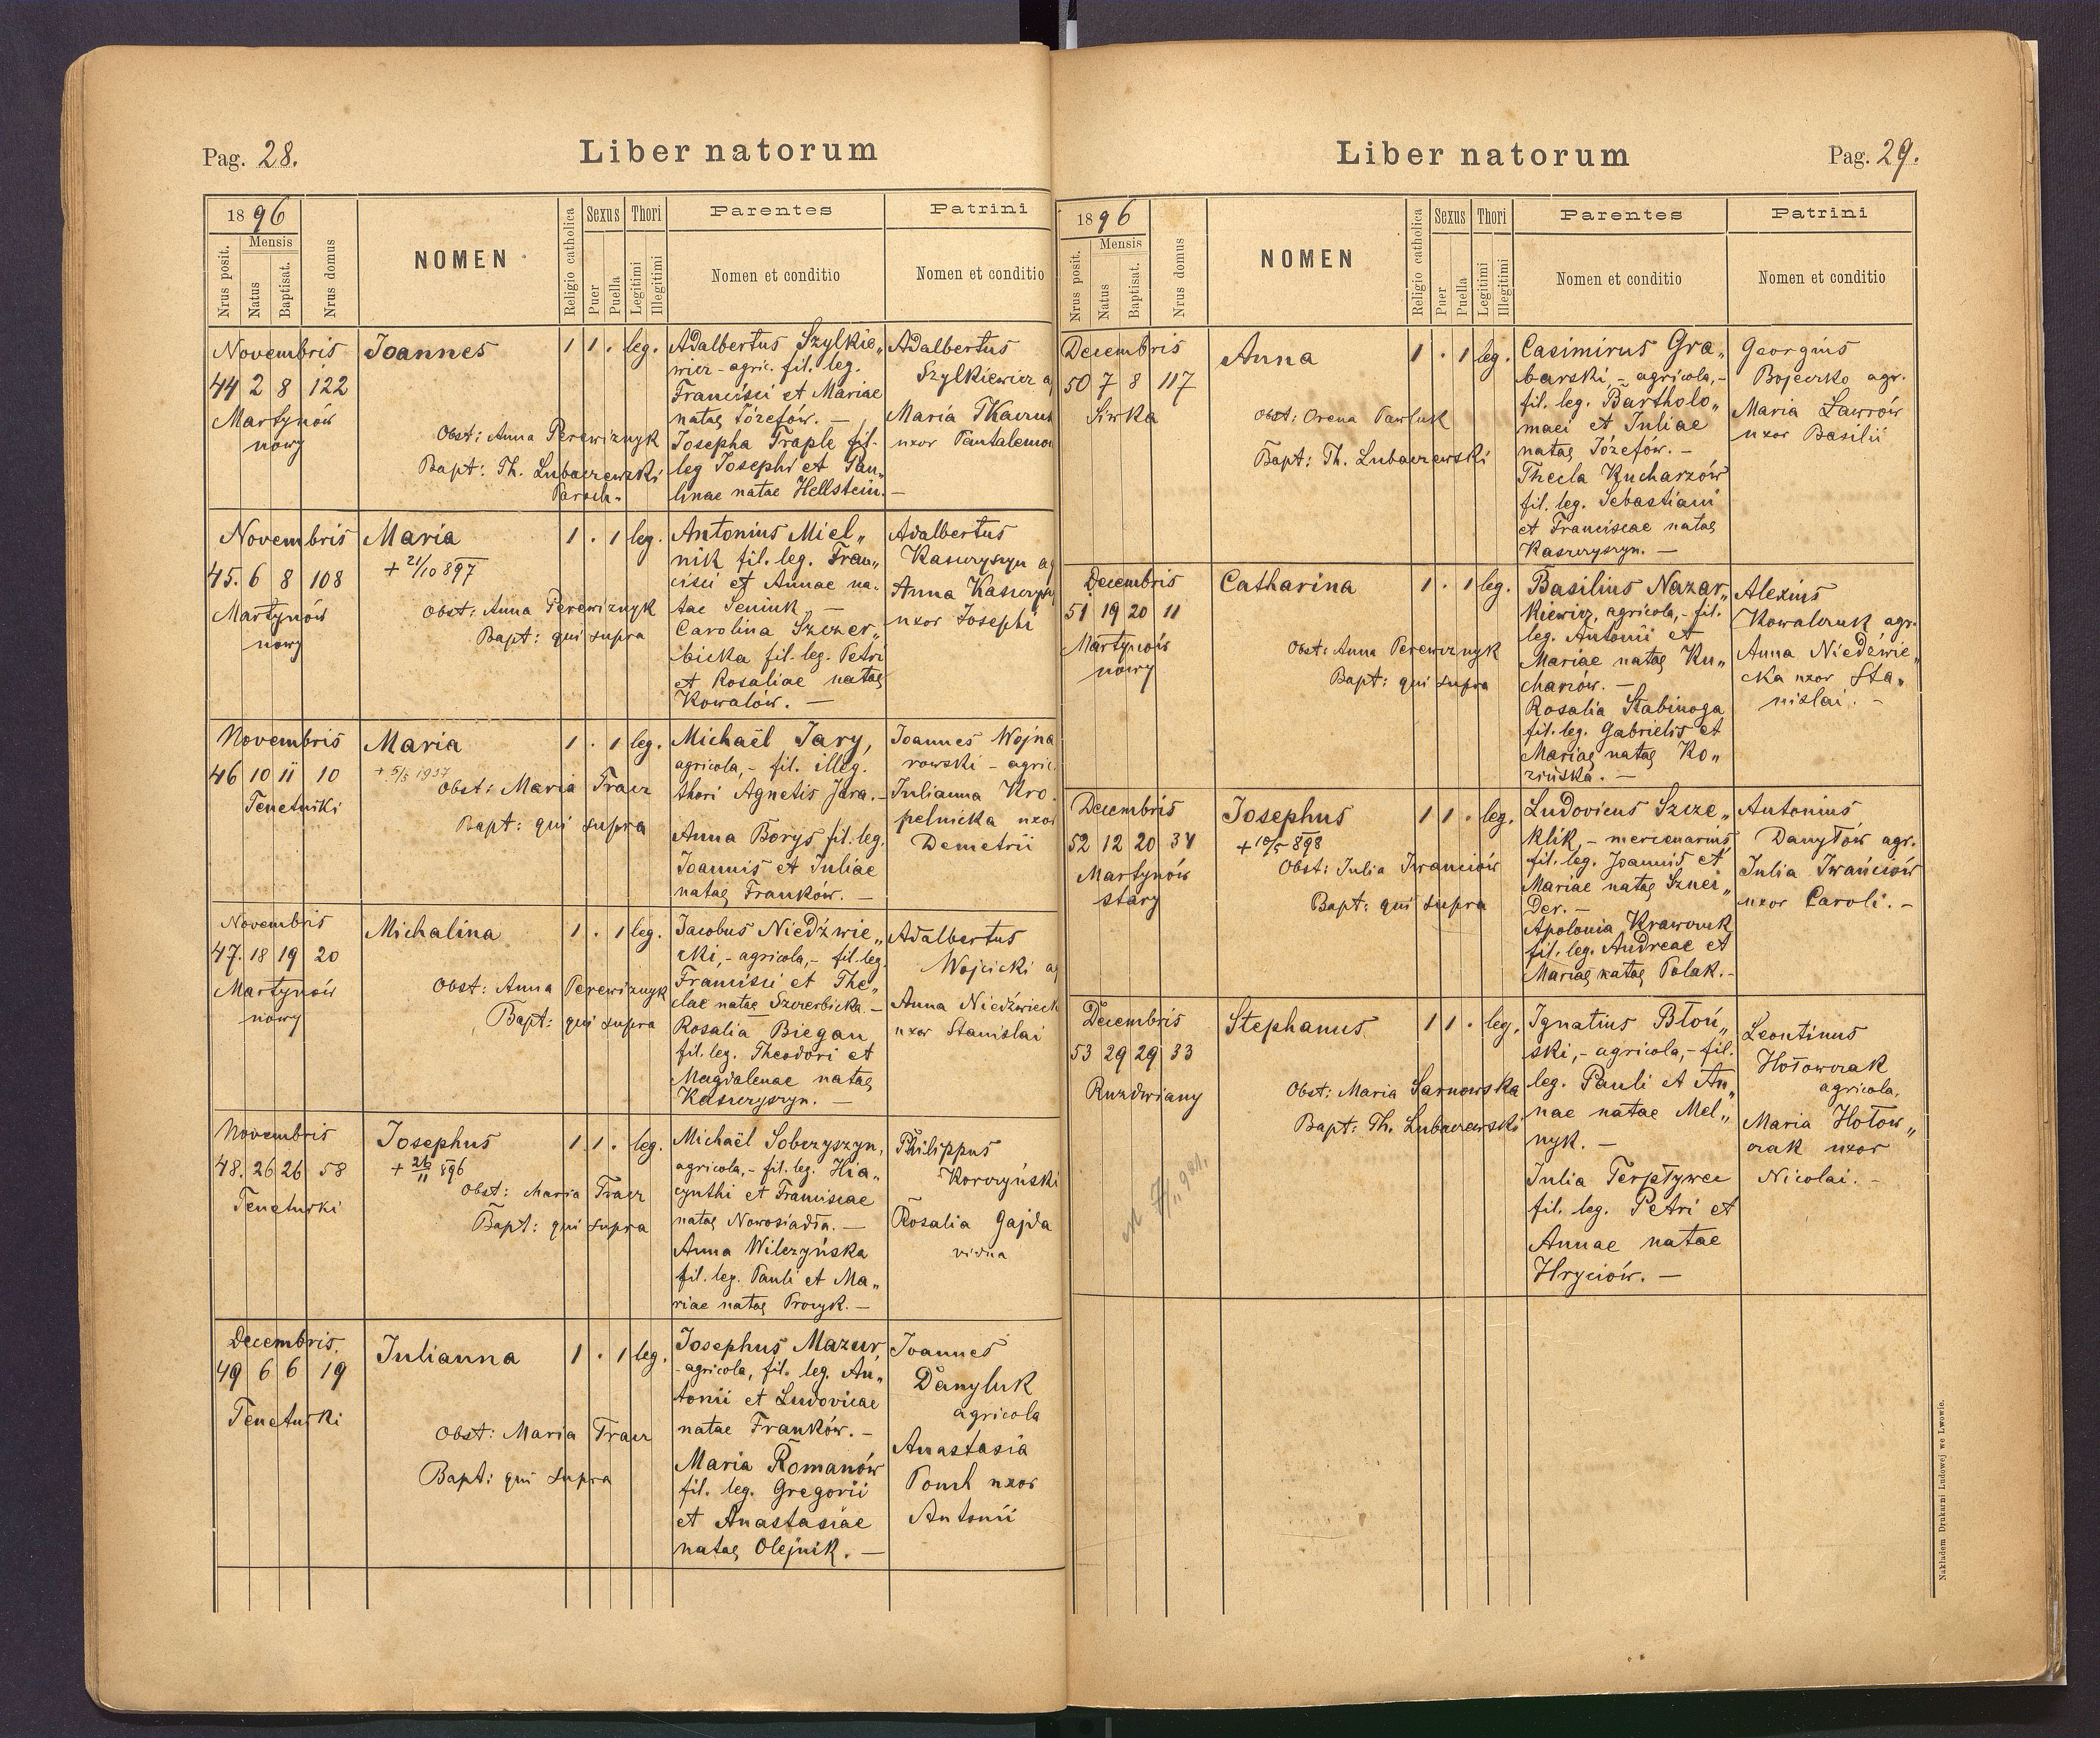 Pag. 28.
Liber natorum
1896
Nrus posit.
Mensis
Natus
Baptisat.
Nrus domus
NOMEN
Religio catholica
Sexus
Puer
Puella
Thori
Legitimi
Illegitimi
Parentes
Nomen et conditio
Patrini
Nomen et conditio
Novembris
44 2 8 122
Martynów
nowy
Joannes
Obst: Anna Perewiznyk
Bapt: Th. Lubaczewski
Paroch.
1 1 . leg.
Adalbertus Szylkie„
wicz - agric. fil. leg.
Francisci et Mariae
natae Józefów. —
Josepha Traple fil.
leg Josephi et Pau„
linae natae Hellstein. —
Adalbertus
Szylkiewicz a
Maria Tkaczuk
uxor Pantalemo
Novembris
45. 6 8 108
Martynów
nowy
Maria
+ 21/10 897
Obst: Anna Perewiznyk
Bapt: qui supra
1 . 1 leg.
Antonius Miel„
nik fil. leg. Fran„
cisci et Annae na„
tae Seniuk —
Carolina Szczer„
bicka fil. leg. Petri
et Rosaliae natae
Kowalów. —
Adalbertus
Kasczyszyn ag
Anna Kasczysz
uxor Josephi
Novembris
46 10 11 10
Tenetniki
Maria
+ 5/5 1937
Obst: Maria Tracz
Bapt: qui supra
1 . 1 leg.
Michaël Jary,
agricola, - fil. illeg.
thori Agnetis Jara. -
Anna Borys fil. leg.
Joannis et Juliae
natae Franków. —
Joannes Wojna
rowski - agric.
Julianna Kro„
pelnicka uxor
Demetrii
Novembris
47. 18 19 20
Martynów
nowy
Michalina
Obst: Anna Perewiznyk
Bapt: qui supra
1 . 1 leg.
Jacobus Niedźwie„
cki, - agricola, - fil. leg.
Francisci et The„
clae natae Szczerbicka. -
Rosalia Biegan
fil. leg. Theodori et
Magdalenae natae
Kasczyszyn. —
Adalbertus
Wojcicki ag
Anna Niedźwieck
uxor Stanislai
Novembris
48. 26 26 58
Tenetniki
Josephus
+ 26/11 896
Obst: Maria Tracz
Bapt: qui supra
1 1 . leg.
Michaël Sobczyszyn,
agricola, - fil. leg. Hia„
cynthi et Franciscae
natae Nowosiadła. —
Anna Wilczyńska
fil. leg. Pauli et Ma„
riae natae Procyk. —
Philippus
Korczyński
Rosalia Gajda
vidua
Decembris.
49 6 6 19
Tenetniki
Julianna
Obst: Maria Tracz
Bapt: qui supra
1 . 1 leg.
Josephus Mazur,
agricola, fil. leg. An„
tonii et Ludovicae
natae Franków. —
Maria Romanów
fil. leg. Gregorii
et Anastasiae
natae Olejnik. —
Joannes
Danyluk
agricola
Anastasia
uxor
Antonii
Liber natorum
Pag. 29.
1896
Nrus posit.
Mensis
Natus
Baptisat.
Nrus domus
NOMEN
Religio catholica
Sexus
Puer
Puella
Thori
Legitimi
Illegitimi
Parentes
Nomen et conditio
Patrini
Nomen et conditio
Decembris
50 7 8 117
Siwka
Anna
Obst: Orena Pawluk
Bapt: Th. Lubaczewski
1 . 1 leg.
Casimirus Gra„
barski, - agricola, -
fil. leg. Bartholo„
maei et Juliae
natae Józefów. —
Thecla Kucharzów
fil. leg. Sebastiani
et Franciscae natae
Kasczyszyn. —
Georgius
Bojeczko agr.
Maria Ławrów
uxor Basilii
Decembris
51 19 20 11
Martynów
nowy
Catharina
Obst: Anna Perewiznyk
Bapt: qui supra
1 . 1 leg.
Basilius Nazar„
kiewicz, agricola, - fil.
leg. Antonii et
Mariae natae Ku„
charzów. —
Rosalia Stabinoga
fil. leg. Gabrielis et
Mariae natae Ko„
zińska. —
Alexius
Kowalczuk agr.
Anna Niedźwie„
cka uxor Sta„
nislai. -
Decembris
52 12 20 34
Martynów
stary
Josephus
+ 10/5 898
Obst: Julia Iwanciów
Bapt: qui supra
1 1 . leg.
Ludovicus Szcze„
klik, - mercenarius
fil. leg. Joannis et
Mariae natae Sznei„
der. —
Apolonia Krawczuk
fil. leg. Andreae et
Mariae natae Polak. -
Antonius
Danyłów agr.
Julia Iwańciów
uxor Caroli. -
Decembris
53 29 29 33
Ruzdwiany
Stephanus
Obst: Maria Sarnowska
Bapt: Th. Lubaczewski
1 1 . leg.
Ignatius Błoń„
ski, - agricola, - fil.
leg. Pauli et An„
nae natae Mel„
nyk. —
Julia Terpływec
fil. leg. Petri et
Annae natae
Hryciów. —
Leontinus
Hołowczak
agricola,
Maria Hołow„
czak uxor
Nicolai. -
Nakładem Drukarni Ludowej we Lwowie.